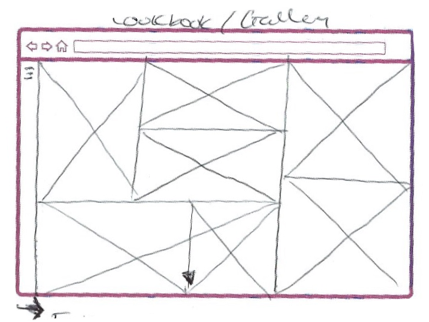 Lookbook / Gallery